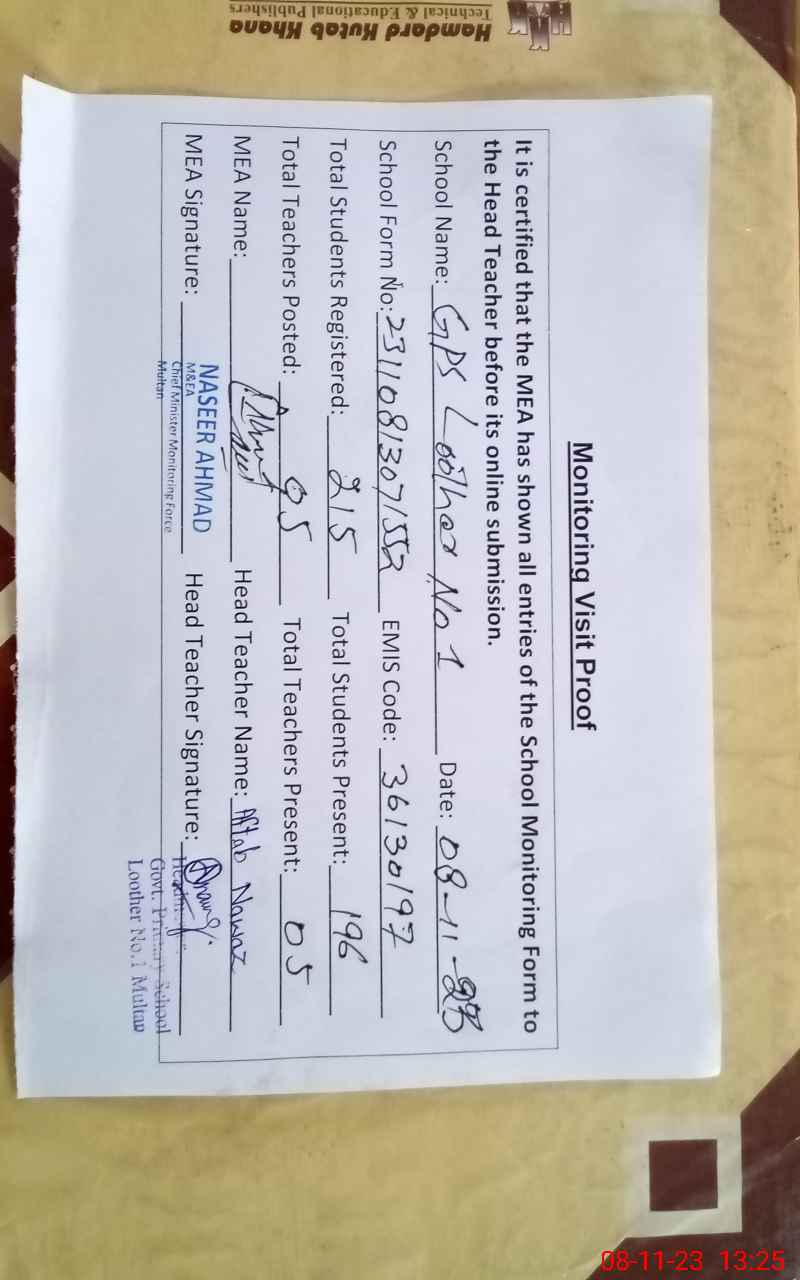 Monitoring Visit Proof
It is certified that the MEA has shown all entries of the School Monitoring Form to
the Head Teacher before its online submission.
School Name: GPS Loother No 1 Date: 08-11-23
School Form No: 23110813071552 EMIS Code: 36130197
Total Students Registered: 215 Total Students Present: 196
Total Teachers Posted: 05 Total Teachers Present: 05
MEA Name: Head Teacher Name: Aftab Nawaz
MEA Signature: Head Teacher Signature:
NASEER AHMAD
M&EA
Chief Minister Monitoring Force
Multan
Govt. Primary School
Loother No.1 Multan
Hamdard Kutab Khana
Technical & Educational Publishers
08-11-23 13:25